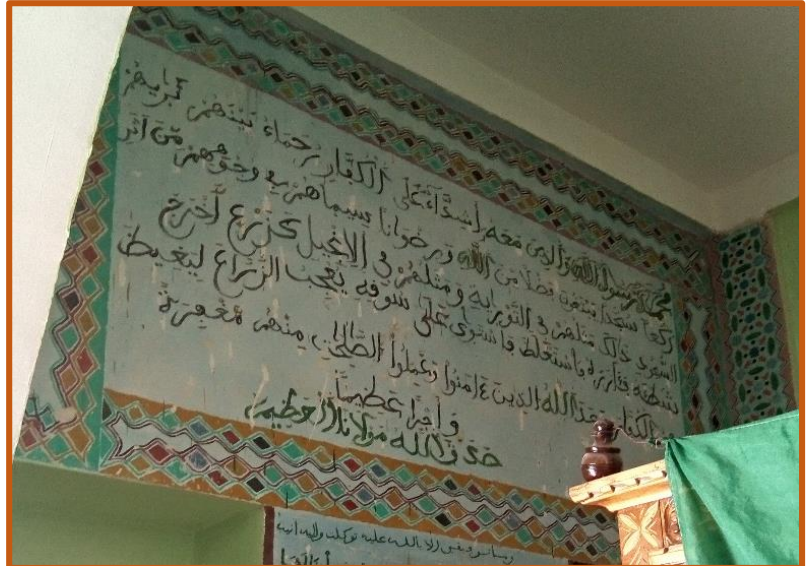 محمد رسول الله والذين معه أشداء على الكفار رحماء بينهم تريهم
ركعا سجدا يبتغون فضلا من الله ورضوانا سيماهم في وجوههم من أثر
السجود ذالك مثلهم في التورية ومثلهم في الإنجيل كزرع أخرج
شطئه فئازره فاستغلظ فاستوى على سوقه يعجب الزراع ليغيظ
بهم الكفار وعد الله الذين ءامنوا وعملوا الصالحات منهم مغفرة
وأجرا عظيما
صدق الله مولانا العظيم
وما توفيقي إلا بالله عليه توكلت وإليه أنيب